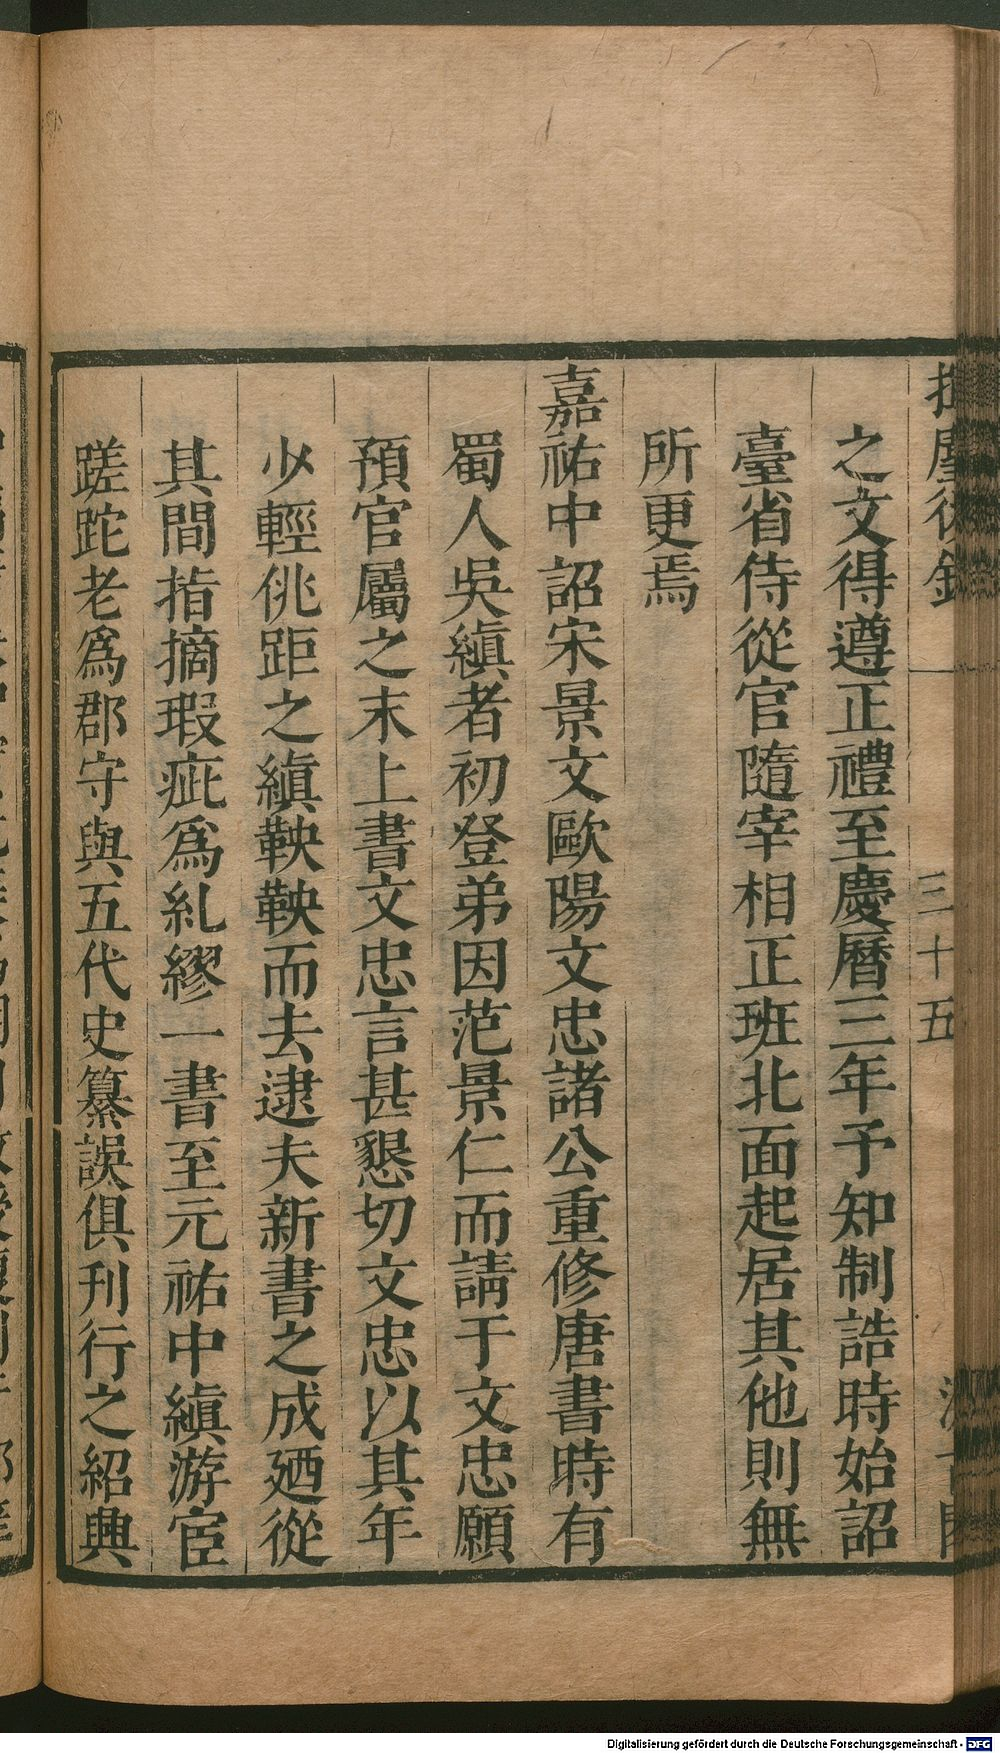 之文得遵正禮至慶曆三年予知制誥時始詔
臺省侍從官隨宰相正班北面起居其他則無
所更焉
嘉祐中詔宋景文歐陽文忠諸公重修唐書時有
蜀人吳縝者初登第因范景仁而請于文忠願
預官屬之末上書文忠言甚懇切文忠以其年
少輕佻距之縝鞅鞅而去逮夫新書之成廼從
其間指摘瑕疵爲糺繆一書至元祐中縝游宦
蹉跎老爲郡守與五代史纂誤俱刊行之紹興
三十五
Digitalisierung gefördert durch die Deutsche Forschungsgemeinschaft - DFG